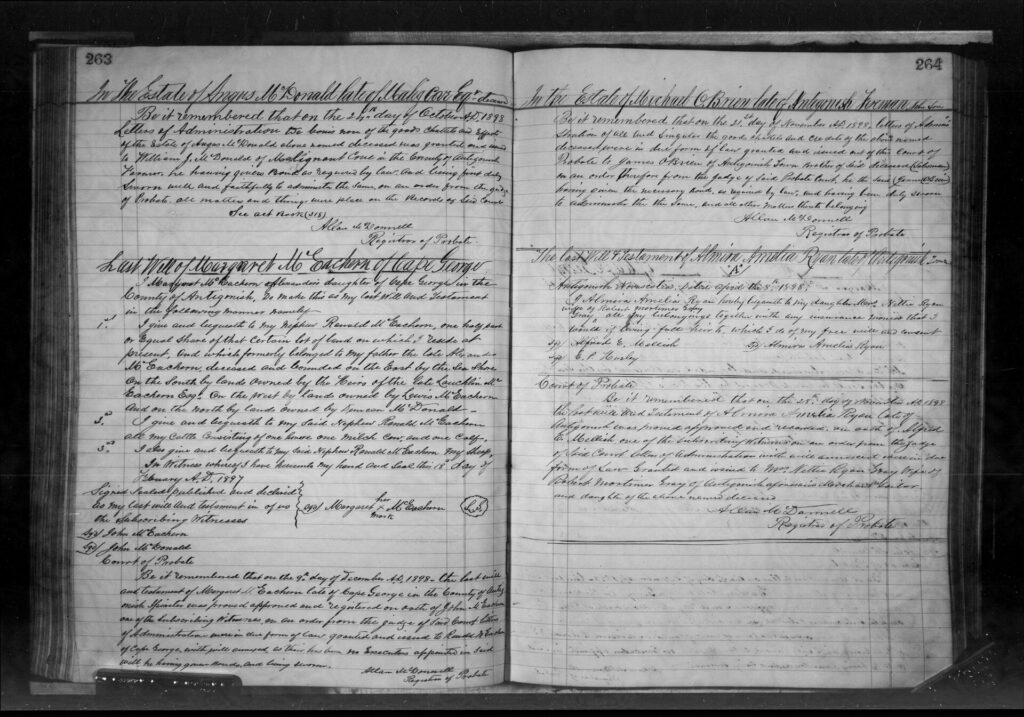 263
In The Estate of Angus McDonald late of Esqr deceased
Be it remembered that on the 24th day of October AD, 1898
Letters of Administration De bonis non of the goods Chattels and
of the Estate of Angus McDonald above named deceased was granted and issued
to William J. McDonald of Malignant Cove in the County of Antigonish
Farmer, he having given Bond as required by law, and being first duly
Sworn well and faithfully to administer the same, on an order from the Judge
of Probate, all matters and things were place on the Records of Said Court
See act Book (318)
Allan McDonnell
Registrar of Probate.
Last Will of Margaret McEachern of Cape George
I Margaret McEachern daughter of Cape George in the
County of Antigonish, Do make this as my last Will and Testament
in the following manner namely
1. I give and bequeath to my Nephew Ranald McEachern, one half part
or Equal Share of that Certain lot of land on which I reside at
present, and which formerly belonged to my father the late Alexander
McEachern, deceased and bounded on the East by the Sea Shore
On the South by lands owned by the Heirs of the late Lauchlin Mc
Eachern Esqr. On the West by land owned by Lewis McEachern
And on the North by lands owned by Duncan McDonald—
I give and bequeath to my Said Nephew Ranald McEachern
all my Cattle Consisting of one horse one Milch Cow, and one Calf—
3. I also give and bequeath to my Said Nephew Ranald McEachern my Sheep.
In Witness whereof I have hereunto my hand and Seal this 18 day of
February A.D. 1897
Signed Sealed published and declared
as my last will and Testament in of us
the Subscribing Witnesses
sgd Margaret her x mark McEachern
LS
Sgd John McEachern
Sgd John McDonald
Court of Probate
Be it remembered that on the 9th day of December A.D, 1898— the last will
and testament of Margaret McEachern late of Cape George in the County of Antig
onish Spinster was proved approved and registered on oath of John McEachern
one of the Subscribing Witnesses, on an order from the judge of Said Court letters
of Administration were in due form of law granted and issued to Ranald McEachern
of Cape George with will annexed as there has been no Executors appointed in Said
will he having given Bonds, and being sworn.
Allan McDonnell
Registrar of Probate
264
In the Estate of Michael O'Brien late of Antigonish
Be it remembered that on the 21st day of November AD 1898, letters of Admini
stration of all and Singular the goods chattels and credits of the above named
deceased were in due form of law granted and issued out of this Court of
Probate to James O'Brien of Antigonish Town Brother of Said deceased
on an order therefrom from the judge of Said Probate Court, he the said (James O'Brien)
having given the necessary bond, as required by law, and having been duly sworn
to administer the the same, and all other matters thereto belonging
Allan McDonnell
Registrar of Probate
The last Will & Testament of Almira Amelia Ryan late of Antigonish Town
"A"
Antigonish Nova Scotia, Date April the 8th 1898
I Almira Amelia Ryan hereby bequeath to my daughter Mrs. Nettie Ryan
wife of Robert Mortimer Gray
Gray, all my belongings together with any insurance monies that I
would if living fall heir to, which I do of my free will and consent
sgd Alfred E. Mellish
sgd Almira Amelia Ryan
sgd E. P. Hurley
Court of Probate
Be it remembered that on the 28th day of November AD 1898
the last will and Testament of Almira Amelia Ryan late of
Antigonish was proved approved and recorded, on oath of Alfred
E. Mellish one of the subscribing Witnesses on an order from the judge
of Said Court letters of Administration with will annexed were in due
form of Law Granted and issued to Mrs Nettie Ryan Gray
Robert Mortimer Gray of Antigonish aforesaid Merchant Tailor
and daughter of the above named deceased
Allan McDonnell
Registrar of Probate